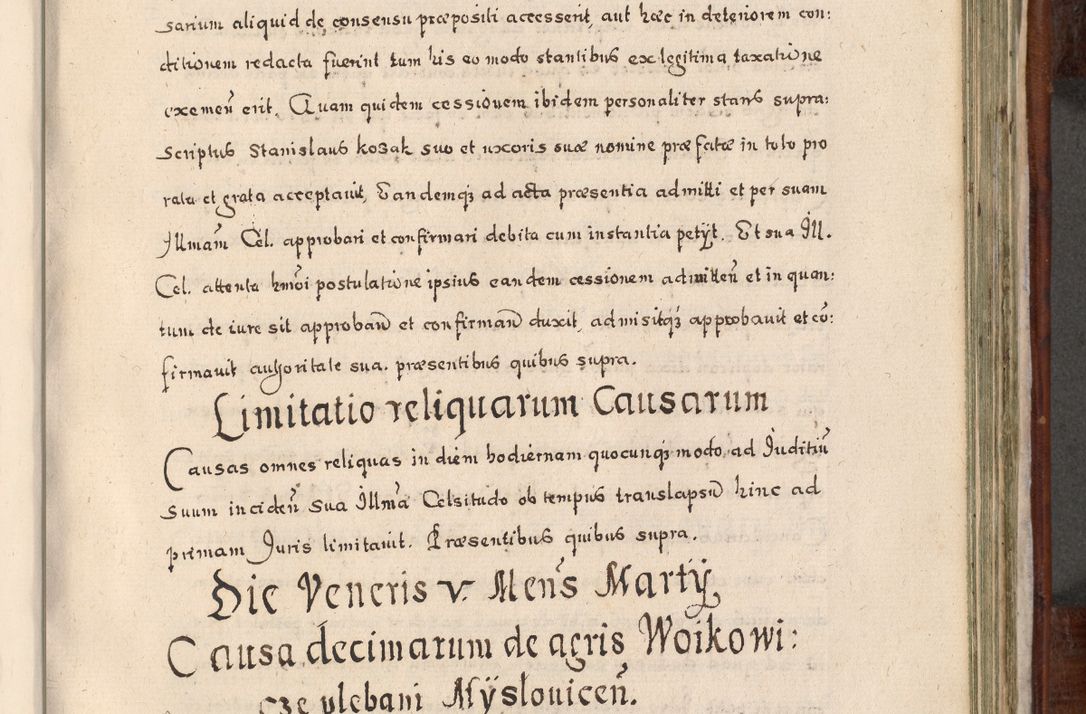 sarium aliquid de consensu præpositi accesserit, aut hæc in deteriorem con:
ditionem redacta fuerint tum his eo modo stantibus ex legitima taxatione
examen̄ erit. Quam quidem cessionem ibidem personaliter stans supra:
scriptus Stanislaus kozak suo et uxoris suæ nomine præfatæ in toto pro
rata et grata acceptavit, Eandemqȝ ad acta præsentia admitti et per suam
Illmam̄ Cel. approbari et confirmari debita cum instantia petÿt. Et sua Ill.
Cel. attenta hmōi postulatione ipsius eandem cessionem admitten̄ et in quan:
tum de iure sit approban̄ et confirman̄ duxit, admisitqȝ approbavit et cō:
firmavit authoritate sua. præsentibus quibus supra.
Limitatio reliquarum Causarum
Causas omnes reliquas in diem hodiernam quocunqȝ modo ad Juditiū
suum inciden̄ Sua Illmā Celsitudo ob tempus translapsū hinc ad
primam Juris limitavit. Præsentibus quibus supra.
Die Veneris v. Mens̄ Martÿ
Causa decimarum de agris Woikowi:
cze plebani Mÿslovicen̄.